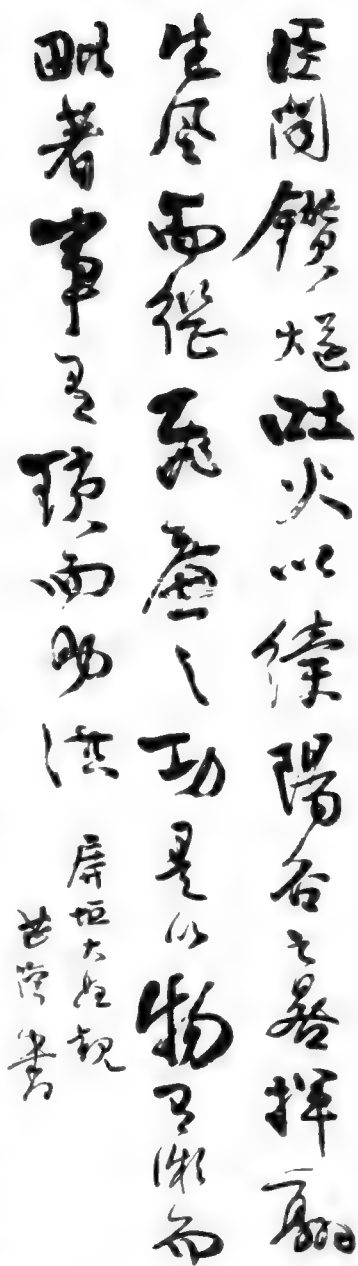 臣聞鑽燧吐火以續陽谷之晷揮翮
生風而繼飛廉之功是以物有微而
毗著事有瑣而助洪
屏垣大姪觀
芷灣書